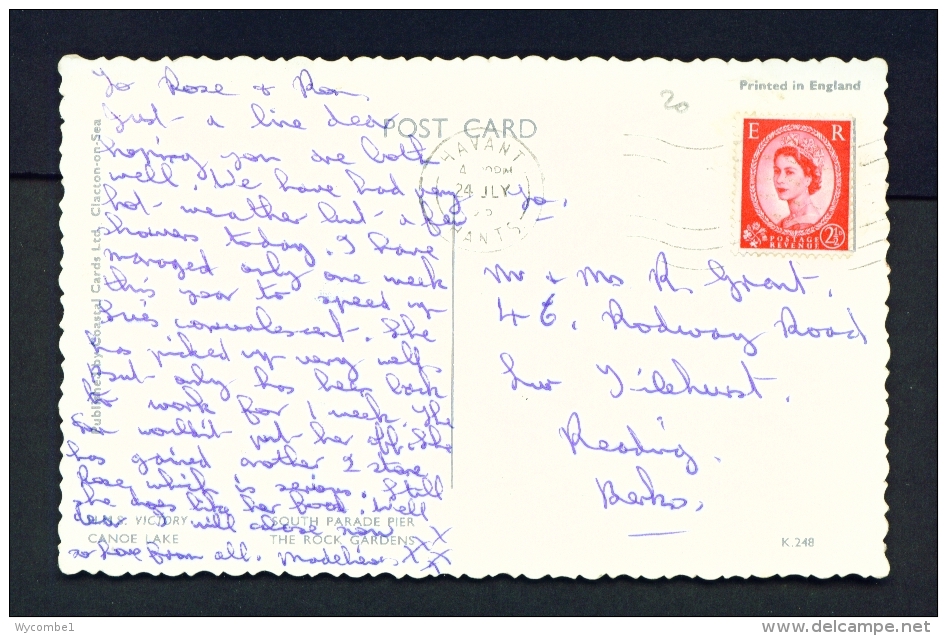 To Rose & Ron,
Just a line dear
hoping you are both
well. We have had very
hot weather but a few
showers today. I have
managed only one week
this year to speed up
Sue's convalescent. She
has picked up very well
but only has been back
to work for 1 week. The
Dr wouldn't put her off. She
has gained another 2 stone
Rose, which is serious. Still
she does like her food. Well
dear I will close now
so love from all. XXX
XX
To.
Mr & Mrs R. Grant.
46, Rodway Road
Tilehurst.
Reading.
Berks.
20
POST CARD
Printed in England
HAVANT
24 JLY
HANTS
E R
POSTAGE
REVENUE
2½D
Published by Coastal Cards Ltd. Clacton-on-Sea
H.M.S. VICTORY
SOUTH PARADE PIER
CANOE LAKE
THE ROCK GARDENS
K.248
Wycombe1
delcampe.net